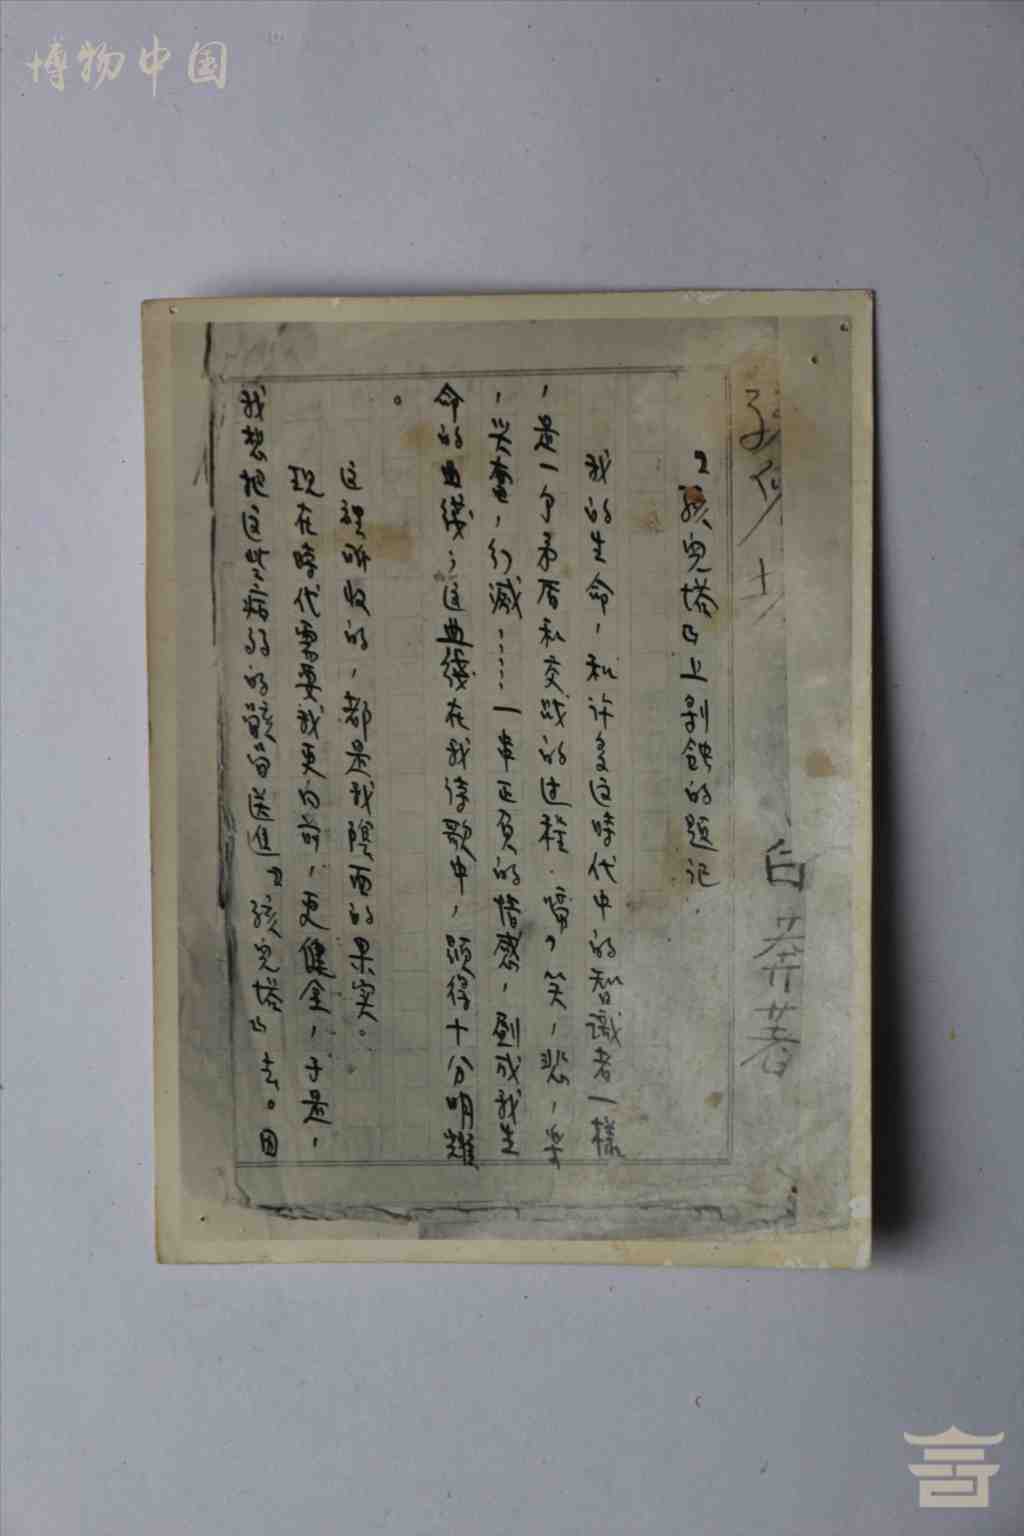 博物中国
孩儿塔
白莽著
『孩兒塔』上剝蝕的題记
我的生命，和许多这時代中的智識者一樣
，是一个矛盾和交战的过程，啼，笑，悲，樂
，兴奮，幻滅……一串正負的情感，劃成我生
命的曲綫；这曲綫在我诗歌中，顕得十分明耀
。
这裡所收的，都是我陰面的果实。
現在時代需要我更向前，更健全，于是，
我想把这些病弱的骸骨送進『孩兒塔』去。因